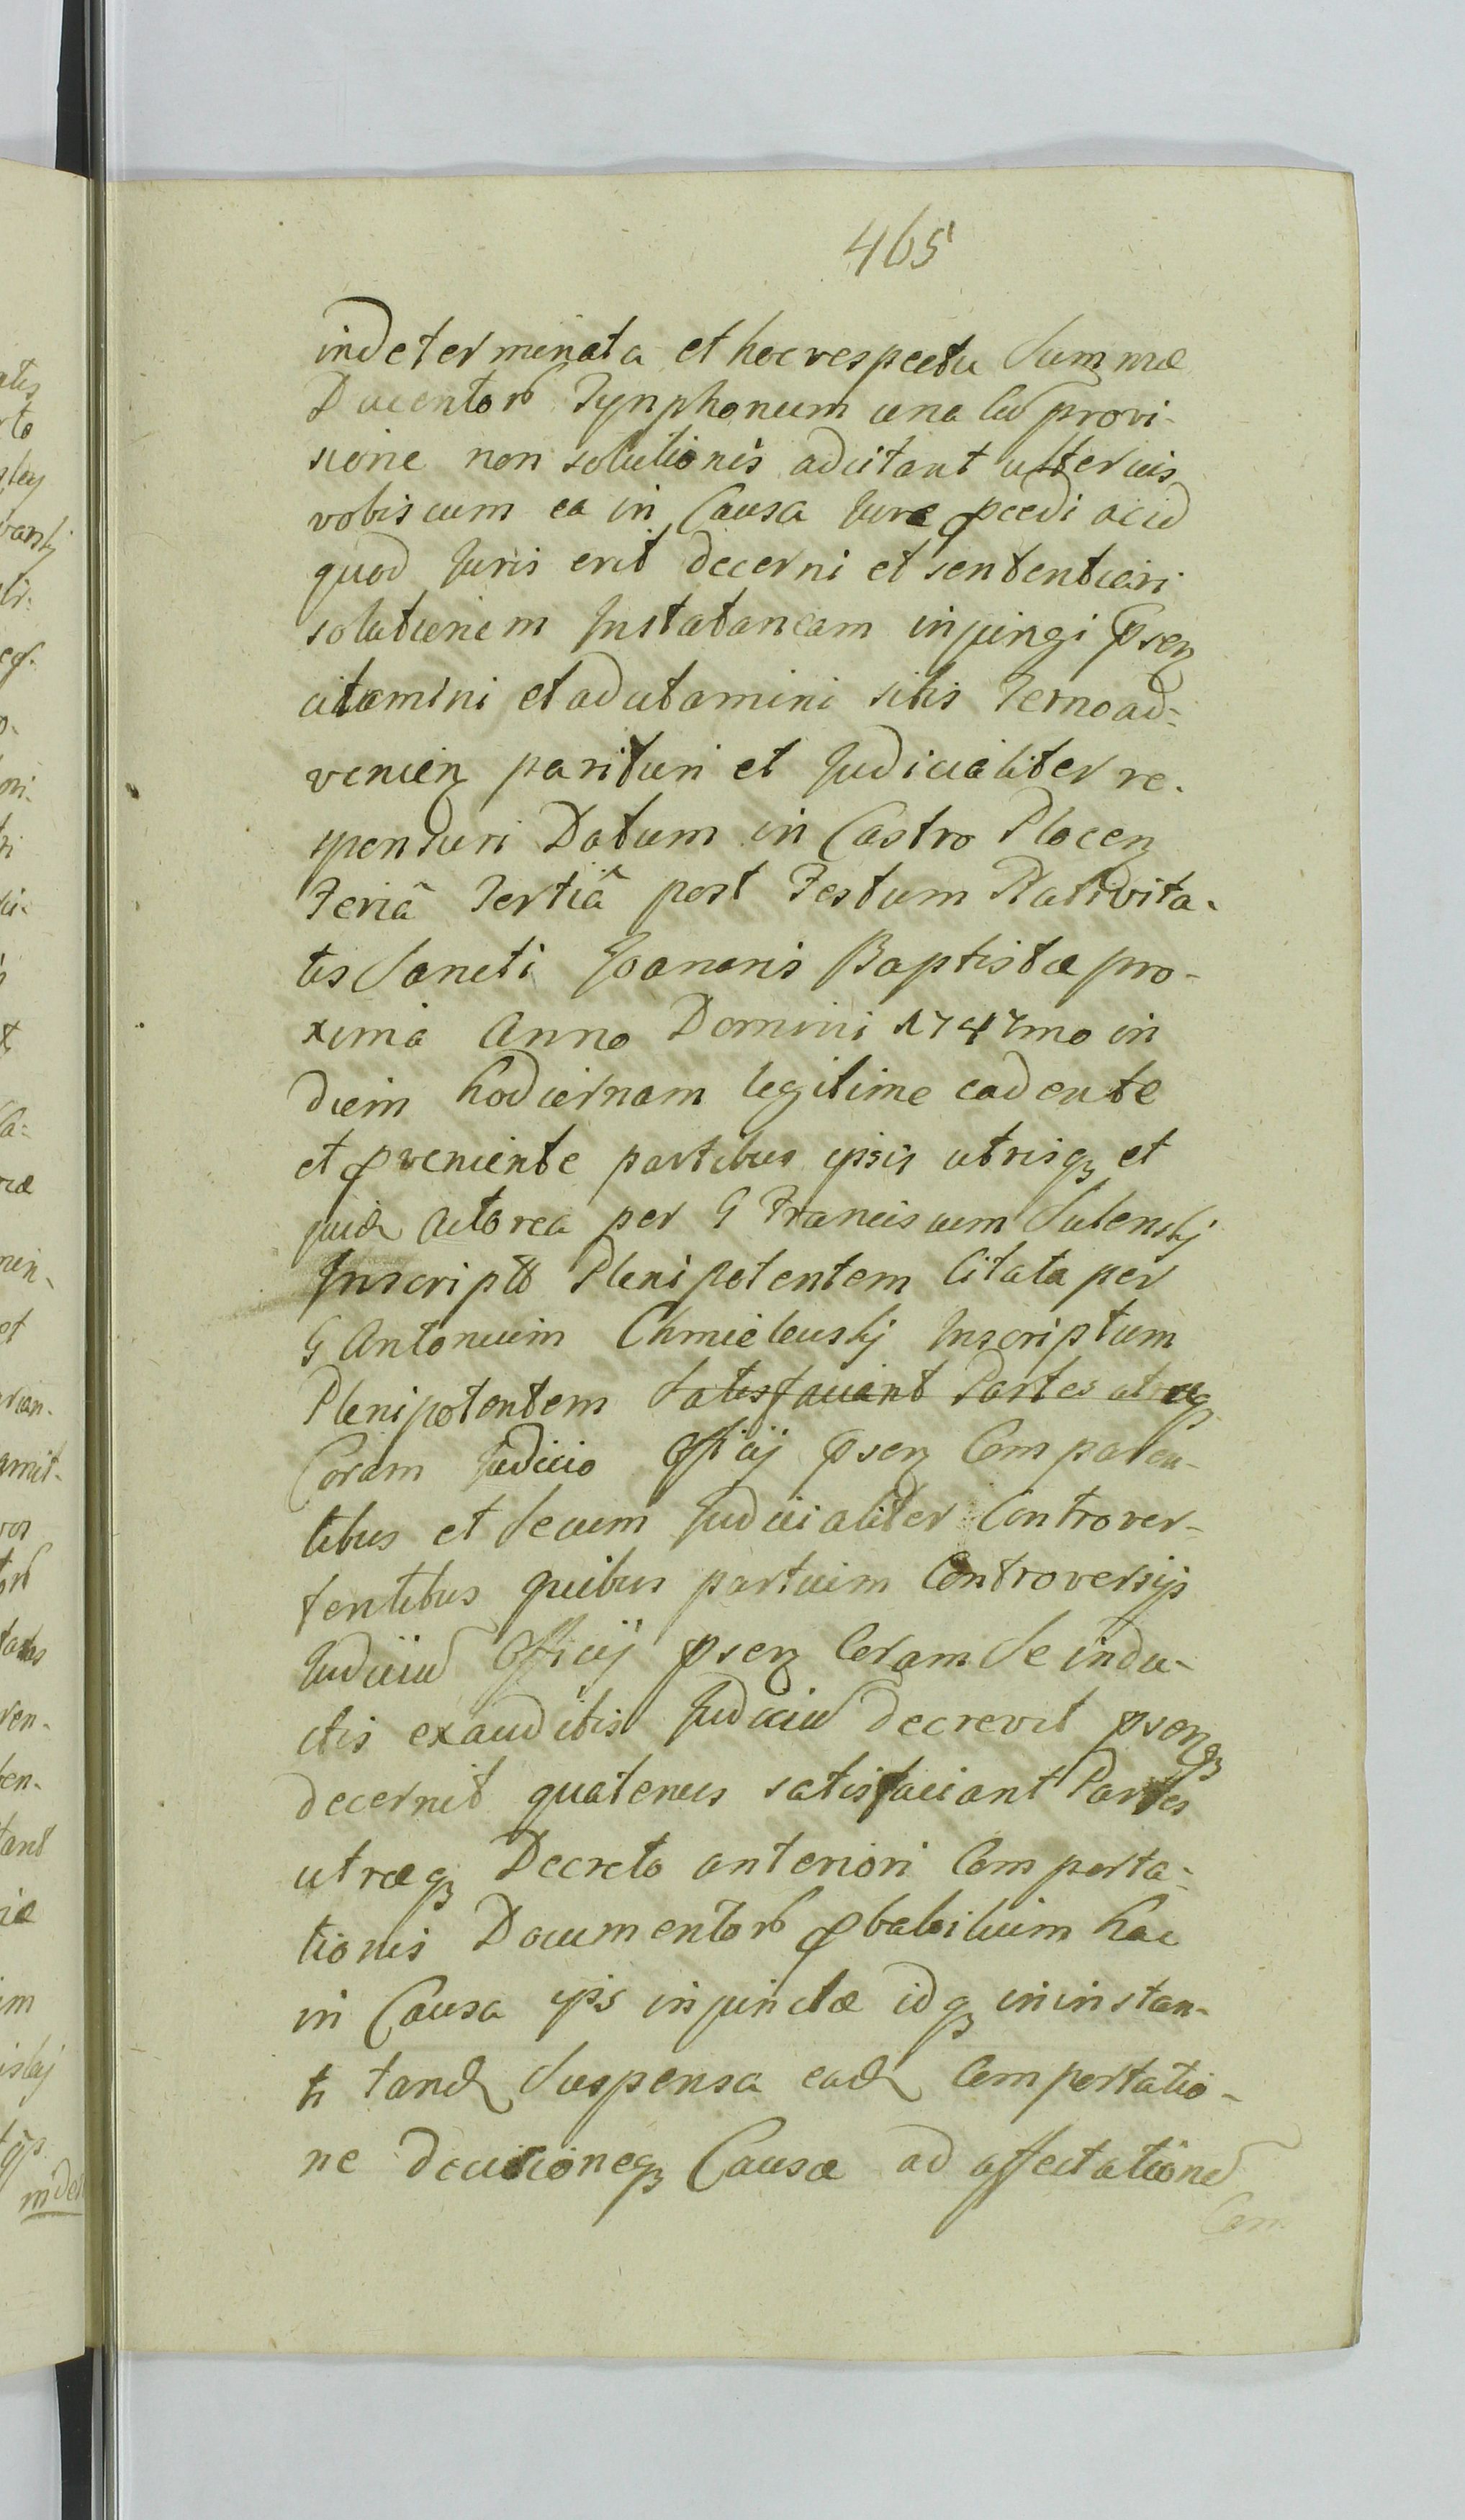 465
indeterminata et hoc respectu Summæ
Ducentorʒ Tynphonum una Cū provi-
sione non solutionis adcitant ulterius
vobiscum ea in Causa Jure ꝓcedi acid
quod Juris erit decerni et sententiari
solutionem Instataneam injungi P̄senꝫ
citamini et adcitamini sitis Termo ad=
venienꝫ parituri et Judicialiter re-
sponsuri Datum in Castro Plocenꝫ
Feriâ Tertiâ post Festum Nativita-
tis Sancti Joannis Baptistæ pro-
xima Anno Domini 1747mo in
diem hodiernam legitime cadente
et ꝓveniente partibus ipsis utrisqꝫ et
quid Actorea per G Franciscum Sulenskj
Inscriptū Plenipotentem Citata per
G Antonium Chmieleuskj Inscriptum
Plenipotentem Satisfaciant Partes utræqꝫ
Coram Judicio Officij P̄senꝫ Comparen-
tibus et Secum Judicialiter Controver-
tentibus quibus partium Controversijs
Judiciū Officij p̄senꝫ Coram Se indu-
ctis exauditis Judiciū decrevit p̄senꝫqꝫ
decernit quatenus satisfaciant Partes
utræqꝫ Decreto anteriori Comporta-
tionis Documentorʒ ꝓbabilium hac
in Causa ips injunctæ idqꝫ in instan-
ti tand Suspensa ead Comportatio-
ne decisioneqꝫ Causæ ad affectationē
Com